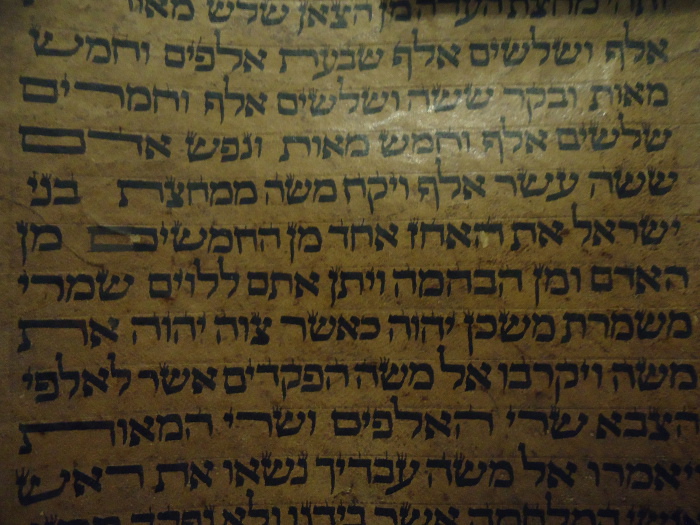 ותהי מחצת העדה מן הצאן שלש מאות
אלף ושלשים אלף שבעת אלפים וחמש
מאות ובקר ששה ושלשים אלף וחמרים
שלשים אלף וחמש מאות ונפש אדם
ששה עשר אלף ויקח משה ממחצת בני
ישראל את האחז אחד מן החמשים מן
האדם ומן הבהמה ויתן אתם ללוים שמרי
משמרת משכן יהוה כאשר צוה יהוה את
משה ויקרבו אל משה הפקדים אשר לאלפי
הצבא שרי האלפים ושרי המאות
ויאמרו אל משה עבדיך נשאו את ראש
המלחמה אשר בידנו ולא נפקד